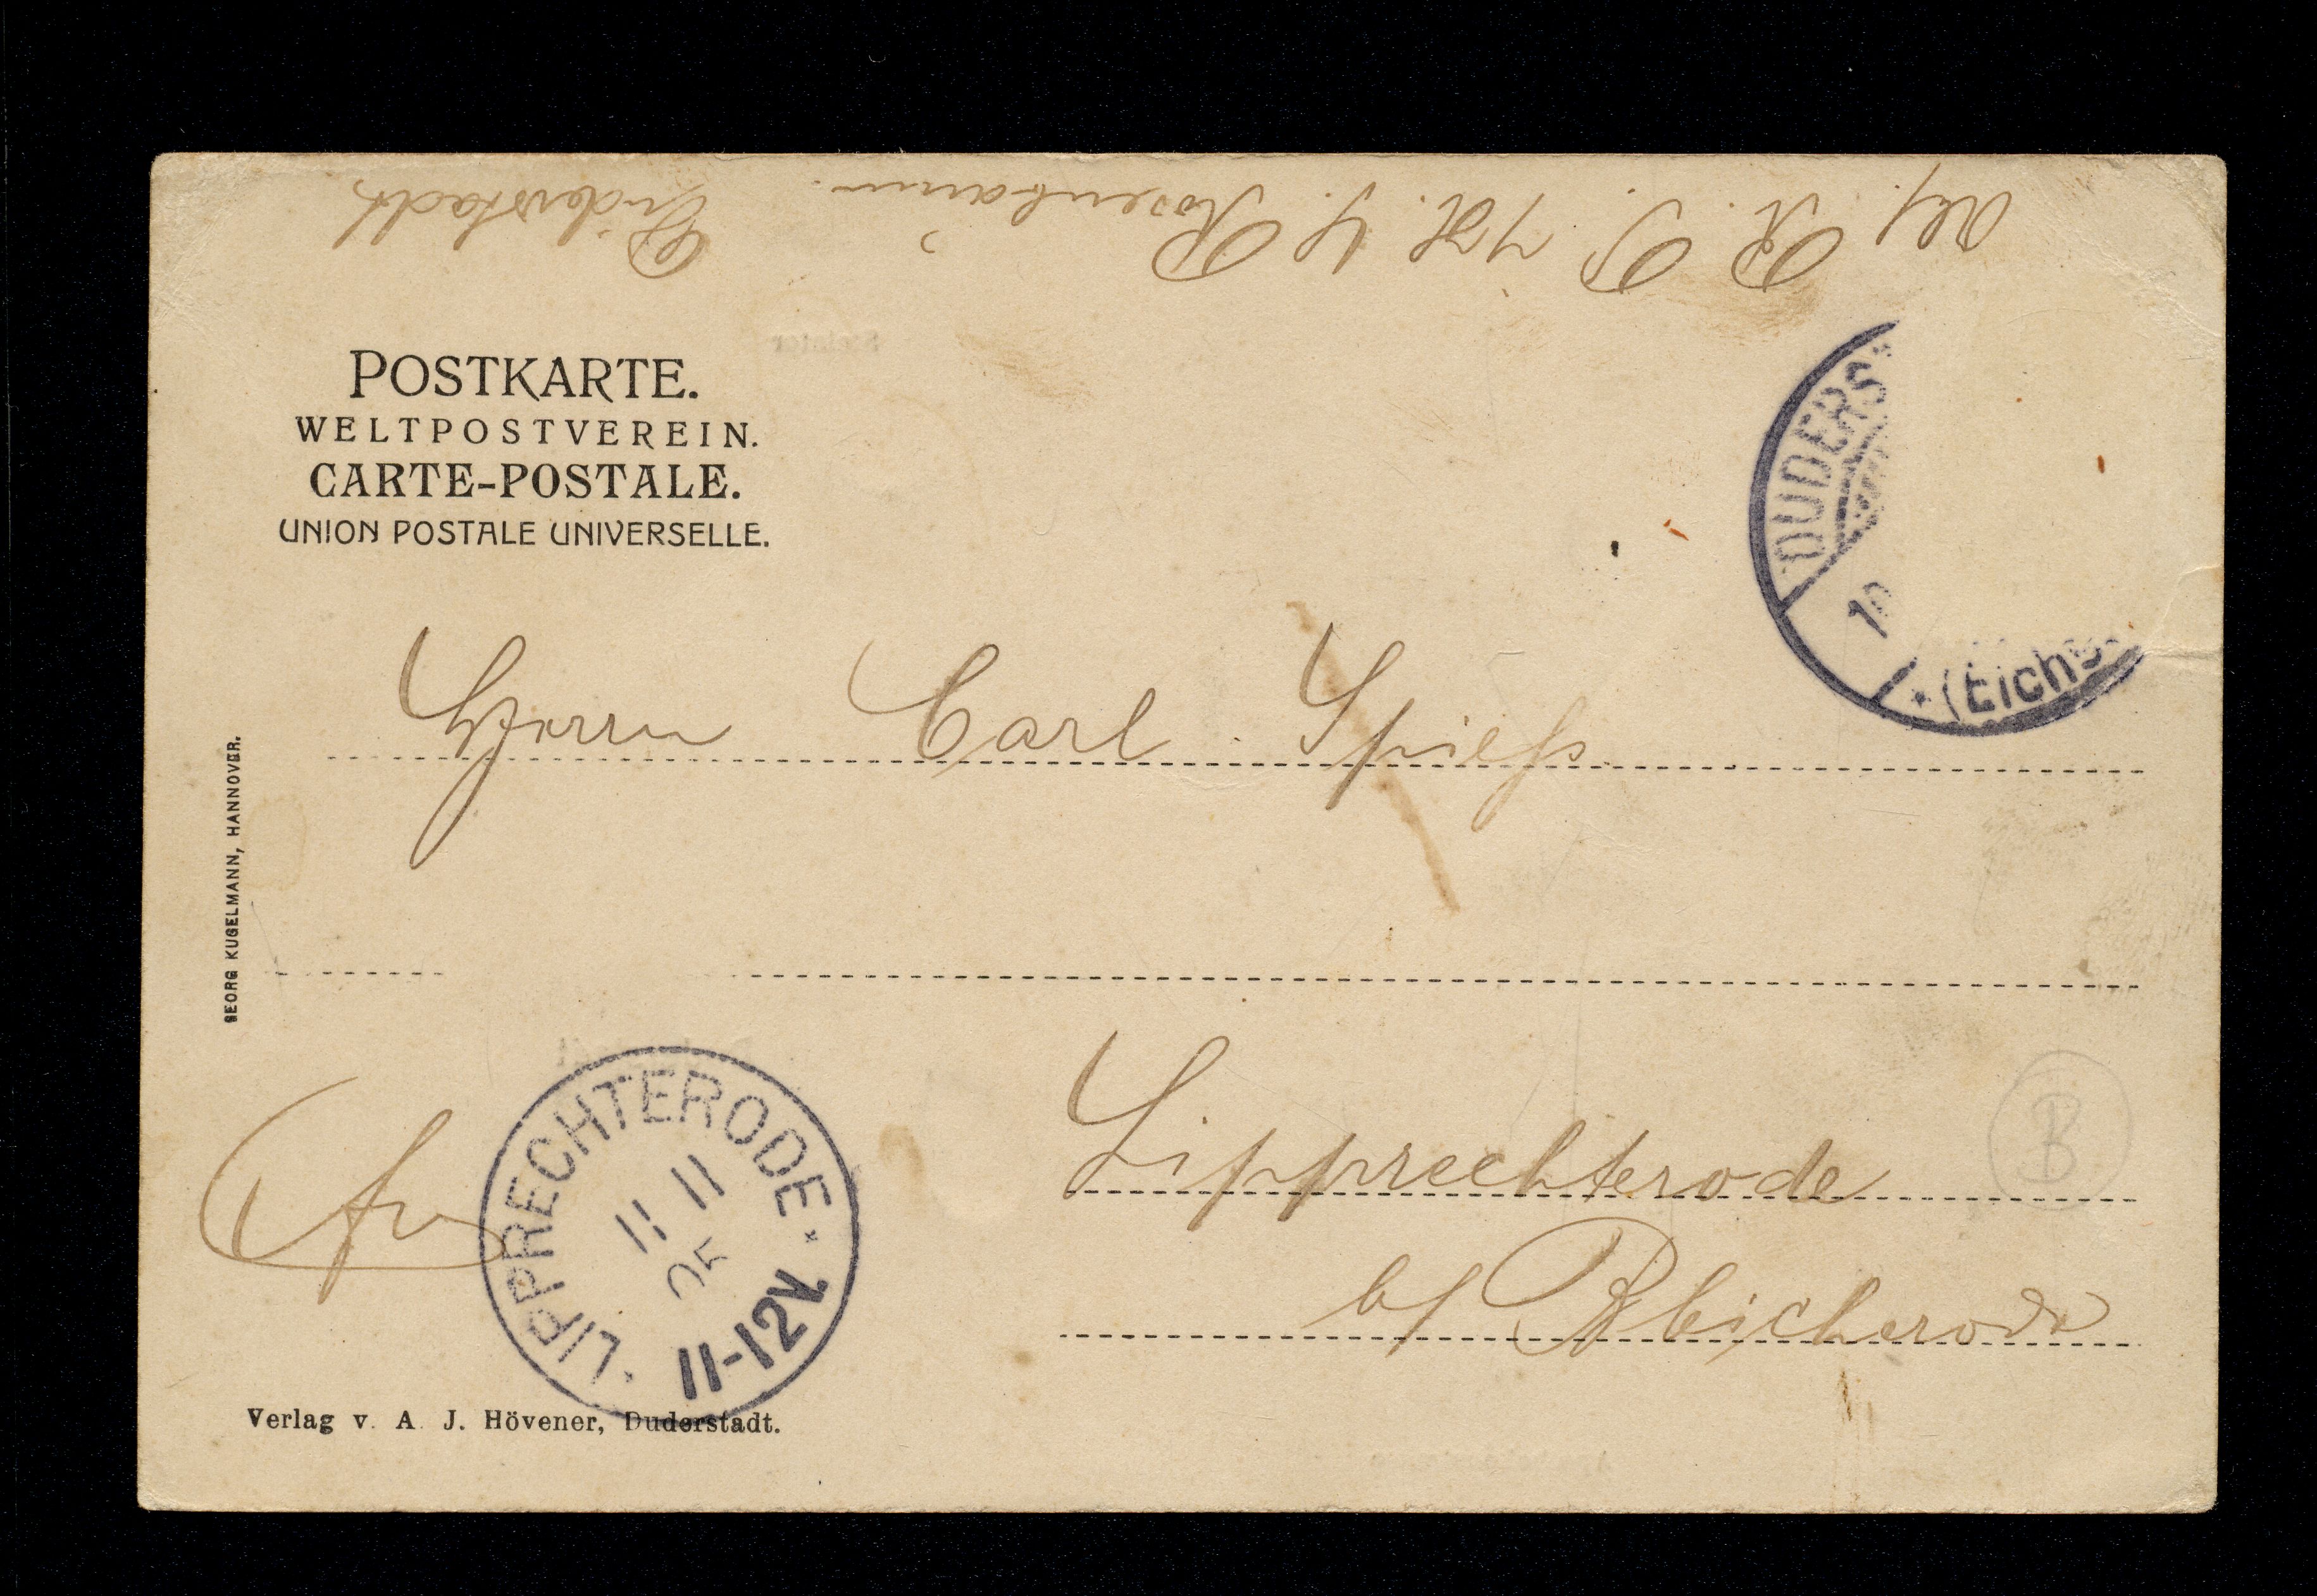 Duderstadt.
Rosenbaum
POSTKARTE.
WELTPOSTVEREIN.
CARTE-POSTALE.
UNION POSTALE UNIVERSELLE.
DUDERS
(Eichs
Herrn Carl Spieß
GEORG KUGELMANN, HANNOVER.
Lipprechterode
b/ Bleicherode
B
LIPPRECHTERODE
11 11
05
11-12V.
Verlag v. A. J. Hövener, Duderstadt.